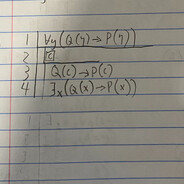 1 ∀y(Q(y)→P(y))
2 c
3 Q(c)→P(c)
4 ∃x(Q(x)→P(x))